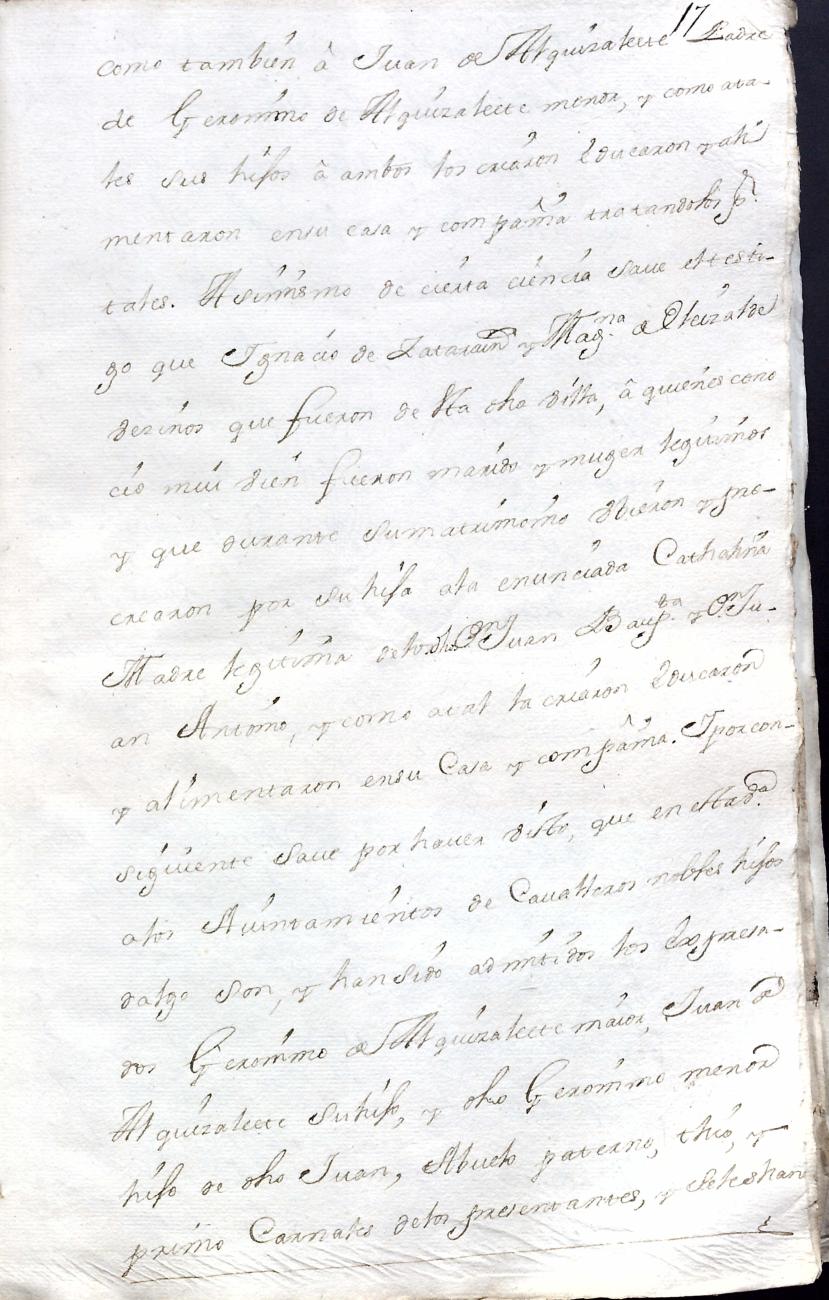 17
como tambien â Juan de Alquizalecte Padre
de Geronimo de Alquizalecte menor, y como ata-
les sus hijos â ambos los criaron Educaron y ali
mentaron ensu casa y compañia tratandolos pr.
tales. Asimismo de cierta ciencia save el testi-
go que Ignacio de Latarain y Magna de Oleizalde
vezinos que fueron de esta dha villa, â quienes cono
ció mui bien fueron marido y muger legitimos
y que durante sumatrimonio vbieron y pro-
crearon por su hija ala enunciada Cathalina
Madre legitima delos dhos Dn Juan Bauptta y Dn Ju-
an Antonio, y como atal la criaron Educaron
y alimentaron ensu Casa y compañia. Y por con-
siguiente save por haver visto, que en esta da.
alos Aiuntamientos de Cavalleros nobles hijos
dalgo son, y hansido admitidos los Expresa-
dos Geronimo de Alquizalecte maior, Juan de
Alquizalecte su hijo, y dho Geronimo menor
hijo de dho Juan, Abuelo paterno, thio, y
primo Carnales delos presentantes, y seleshan